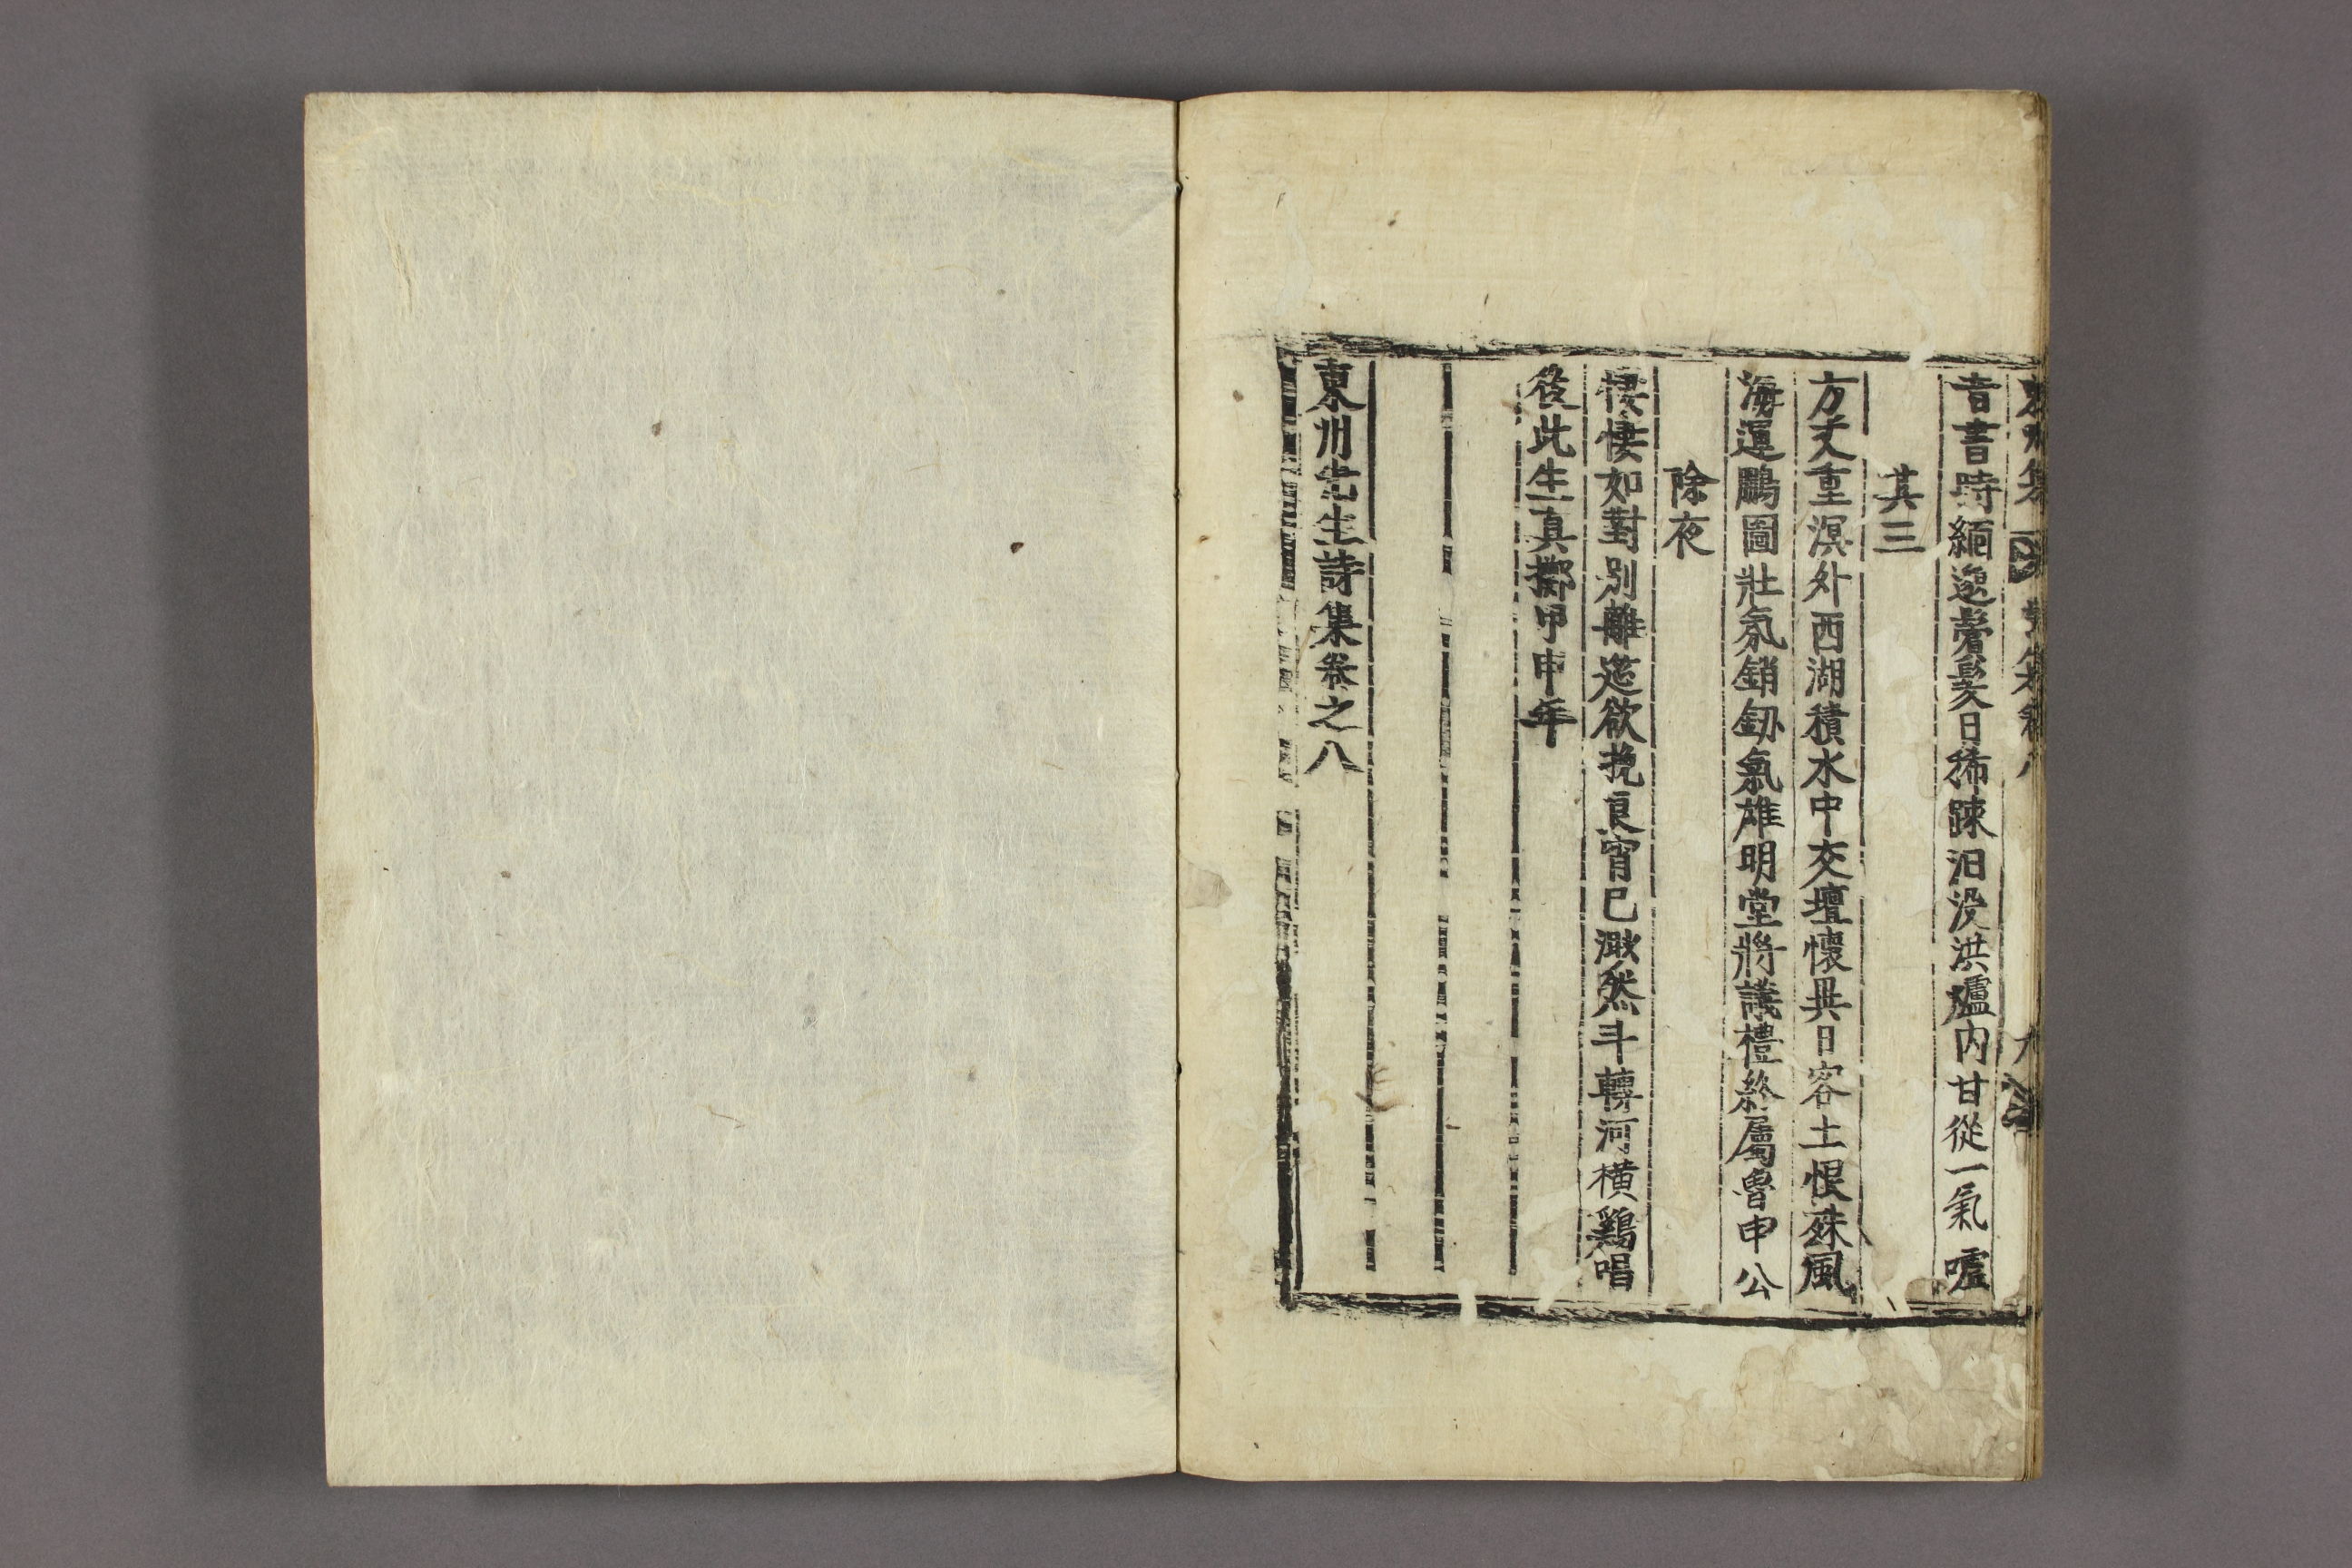 音書時緬邈鬢髮日稀踈汨沒洪爐內甘從一氣噓
其三
方丈重溟外西湖積水中交壇懷畀日客土恨殊風
海運鵬圖壯氛銷釰氣雄明堂將議禮終屬魯申公
除夜
悽悽如對別離筵欲挽良宵已邈然斗轉河橫鷄唱
後此生眞擲甲申年
東州先生詩集卷之八